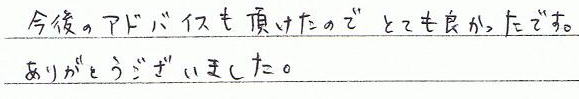 今後のアドバイスも頂けたので とても良かったです。
ありがとうございました。